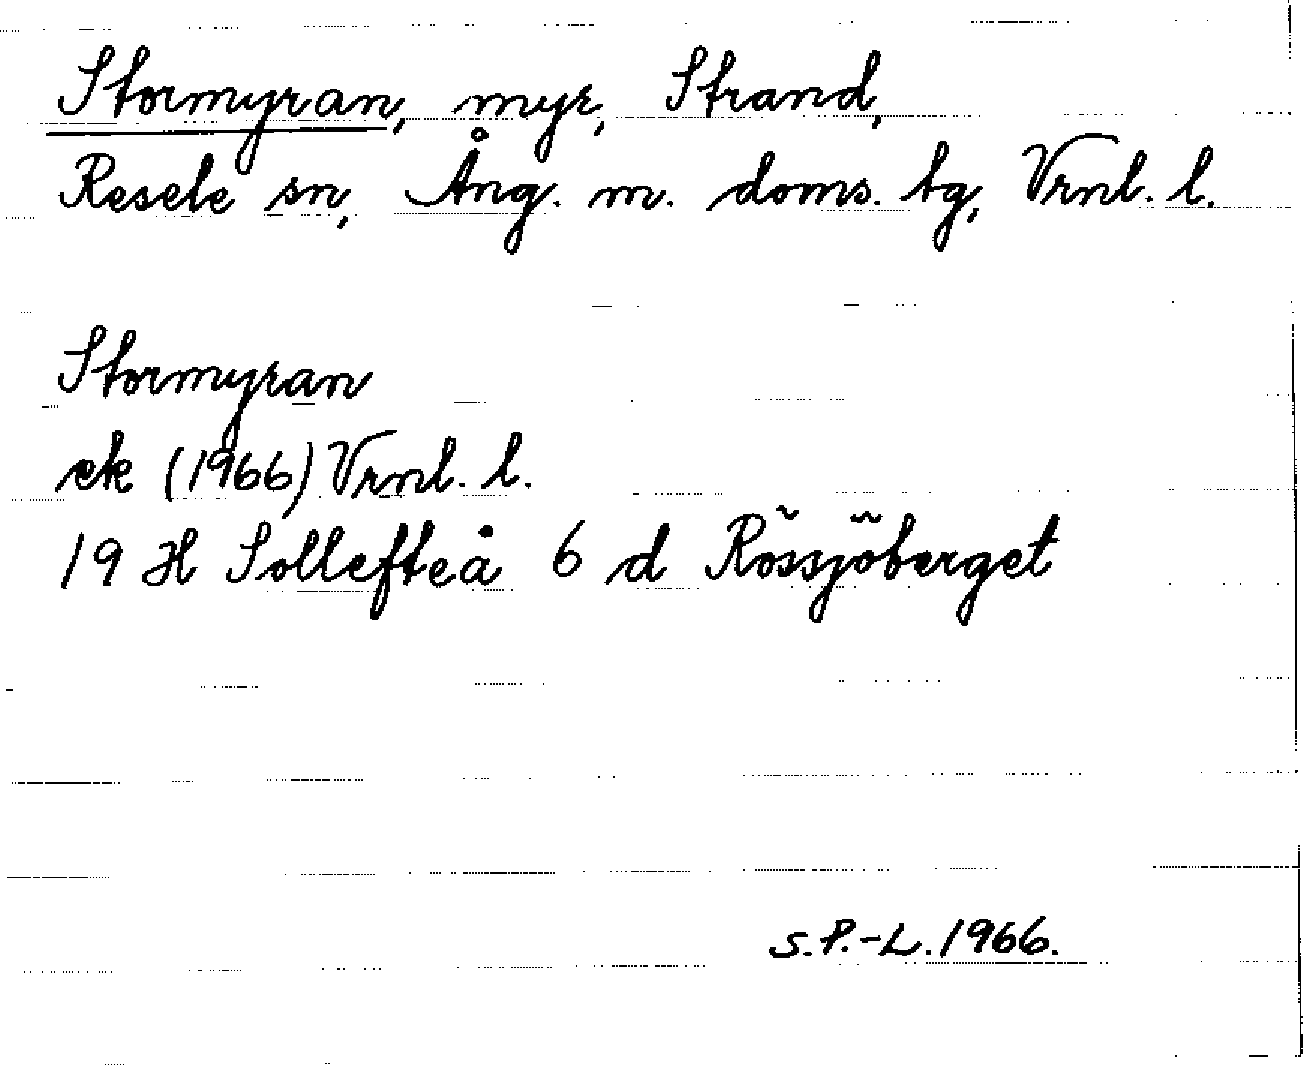 Stormyran, myr, Strand,
Resele sn, Ång. m. doms. tg, Vrnl. l.
Stormyran
ek (1966) Vrnl. l.
19 H Sollefteå 6 d Rössjöberget
S.P.-L. 1966.